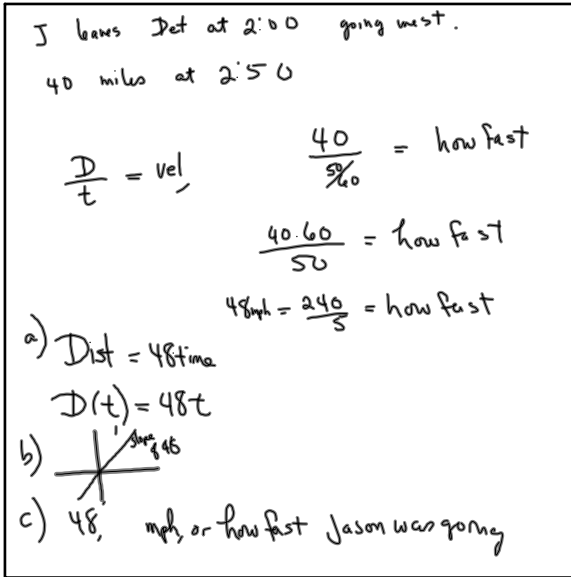 J leaves Det at 2:00 going west.
40 miles at 2:50
D/t = vel,
40/(50/60) = how fast
40·60/50 = how fast
48mph = 240/5 = how fast
a) Dist = 48time
D(t) = 48t
b) slope of 48
c) 48, mph, or how fast Jason was going